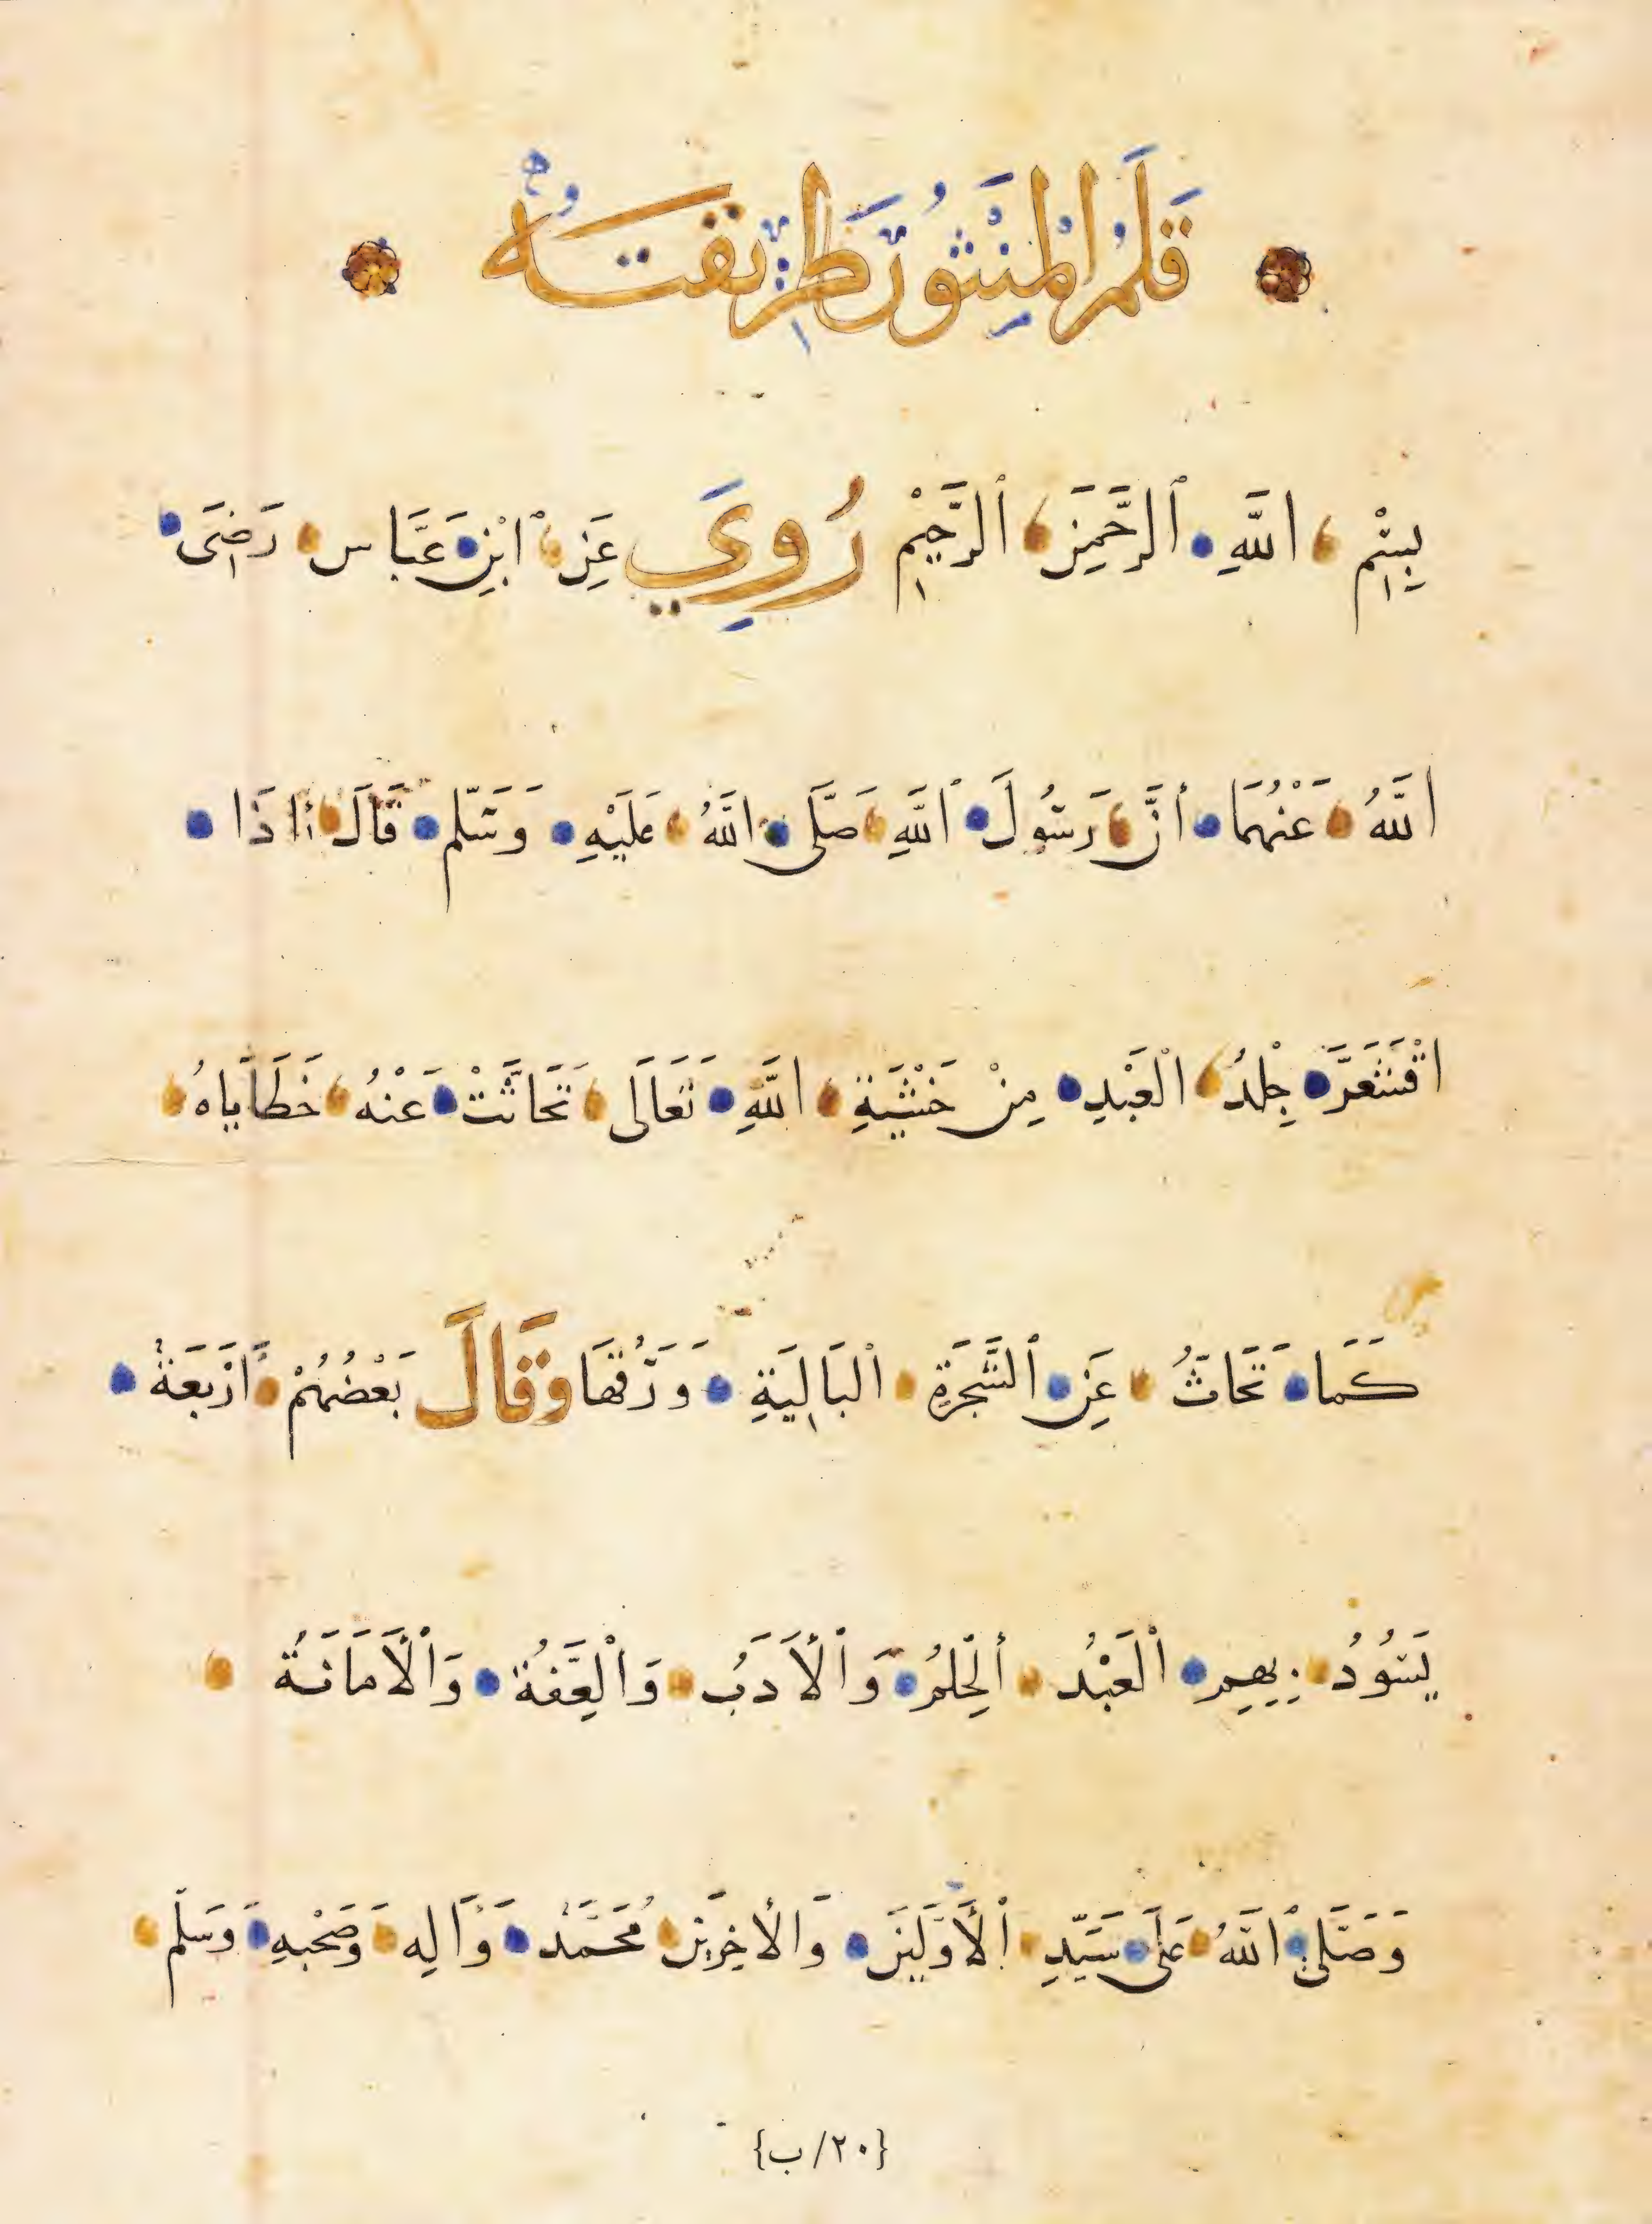 قَلَمُ الْمَنْثُورِ طَرِيقَتُهُ
بِسْمِ اللَّهِ الرَّحْمَنِ الرَّحِيمِ رُوِيَ عَنِ ابْنِ عَبَّاس رَضِيَ
اللَّهُ عَنْهُمَا أَنَّ رَسُولَ اللَّهِ صَلَّى اللَّهُ عَلَيْهِ وَسَلَّم قَالَ إِذَا
اقْشَعَرَّ جِلْدُ الْعَبْدِ مِنْ خَشْيَةِ اللَّهِ تَعَالَى تَحَاتَّتْ عَنْهُ خَطَايَاهُ
كَمَا تَحَاتُّ عَنِ الشَّجَرَةِ الْبَالِيَةِ وَرَقُهَا وَقَالَ بَعْضُهُمْ أَرْبَعَةٌ
يَسُودُ بِهِم الْعَبْدُ الْحِلْمُ وَالْأَدَبُ وَالْعِفَّةُ وَالْأَمَانَةُ
وَصَلَّى اللَّهُ عَلَى سَيِّدِ الْأَوَّلِينَ وَالْآخِرِينَ مُحَمَّد وَآلِهِ وَصَحْبِهِ وَسَلَّم
{٢٠/ب}